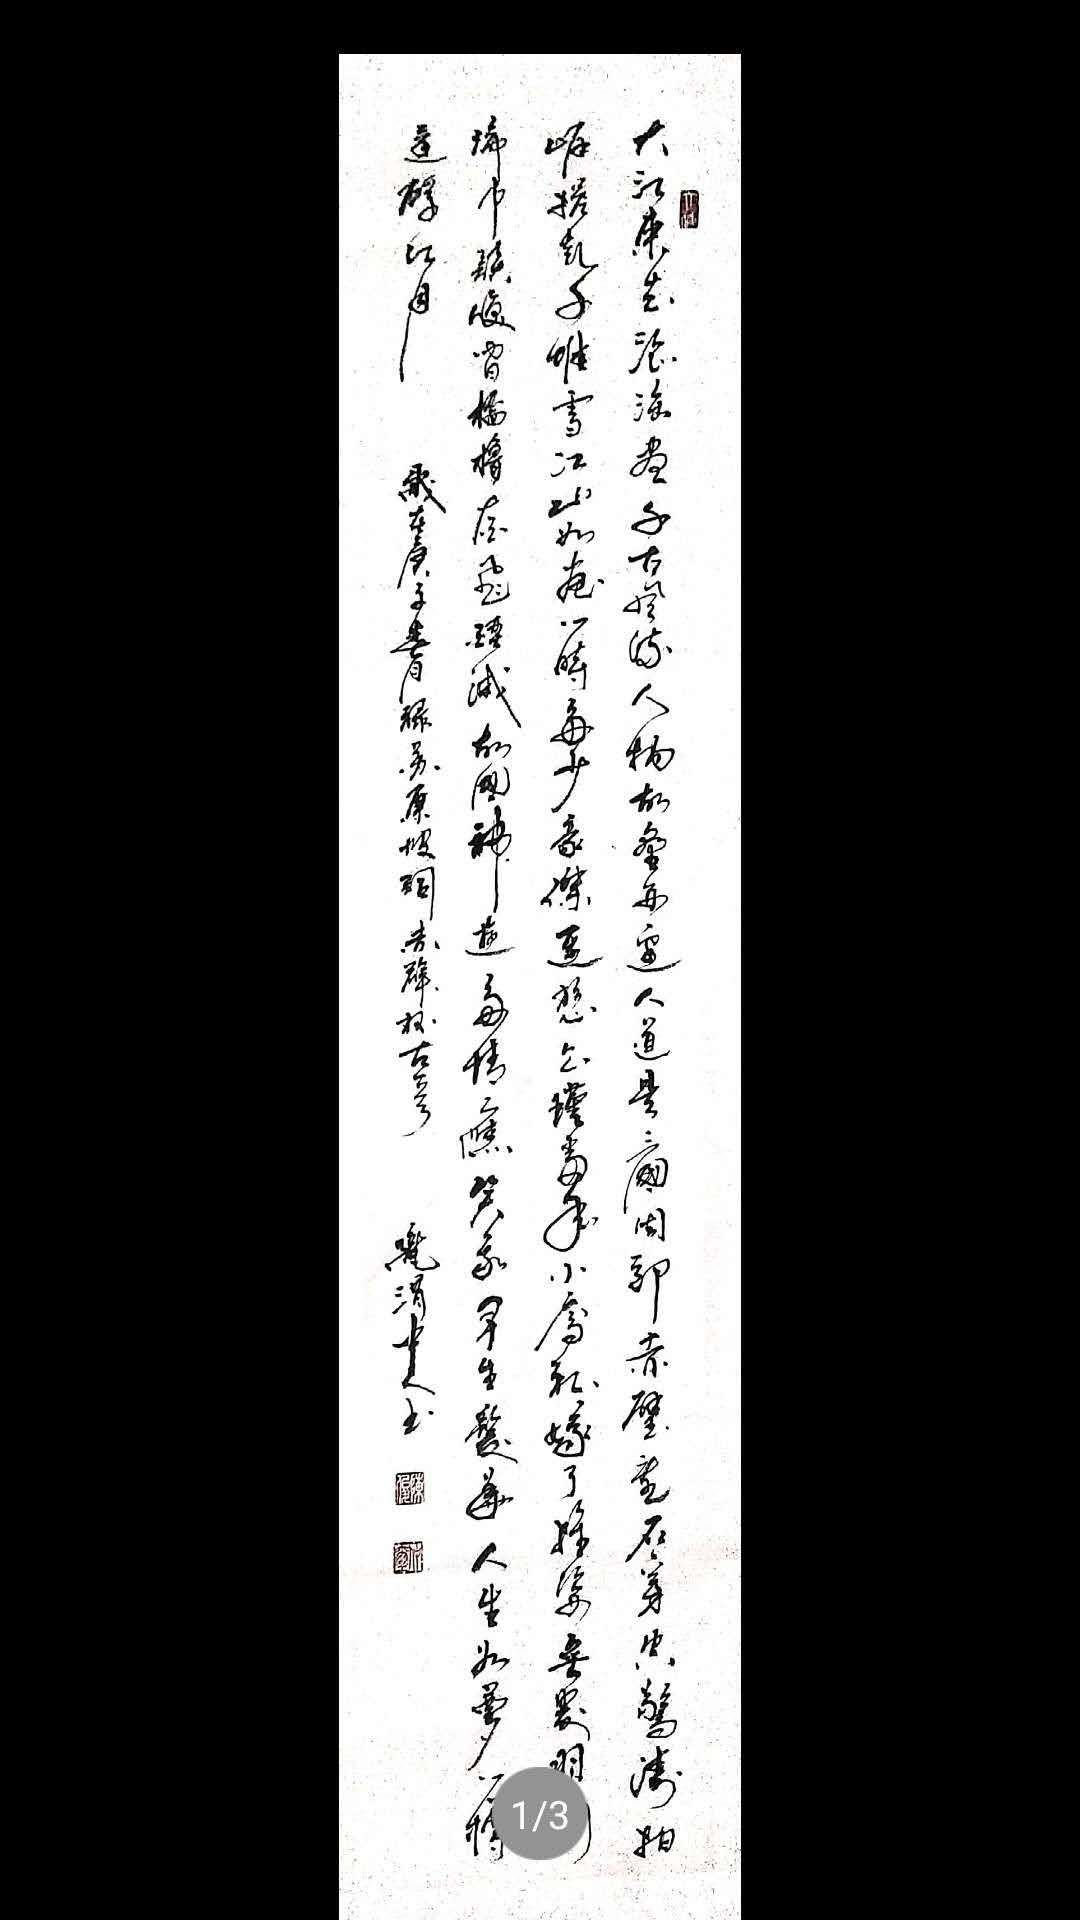 大江東去浪淘盡千古風流人物故壘西邊人道是三國周郎赤壁亂石穿空驚濤拍
岸捲起千堆雪江山如畫一時多少豪傑遙想公瑾當年小喬初嫁了雄姿英發羽
綸巾談笑間檣櫓灰飛煙滅故國神遊多情應笑我早生華髮人生如夢一樽
還酹江月
歲在庚子春月錄蘇東坡詞赤壁懷古
書
1/3